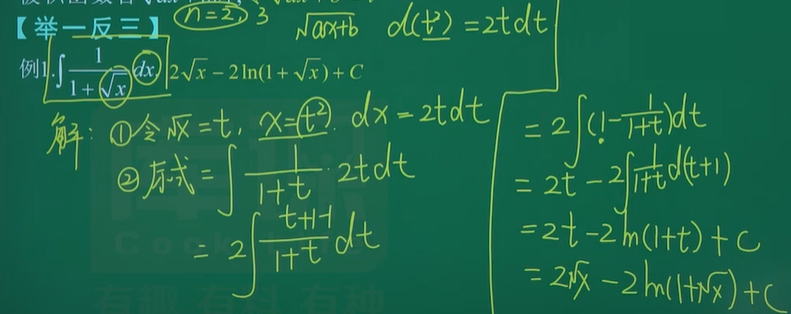 【举一反三】 n=2, 3 √(ax+b) d(t²)=2tdt
例1. ∫ 1/(1+√x) dx. 2√x − 2ln(1+√x) + C
解: ①令√x=t, x=t². dx=2tdt
②原式=∫ 1/(1+t) · 2tdt
=2∫ (t+1-1)/(1+t) dt
=2∫(1-1/(1+t))dt
=2t-2∫1/(1+t) d(t+1)
=2t-2ln(1+t)+C
=2√x-2ln(1+√x)+C